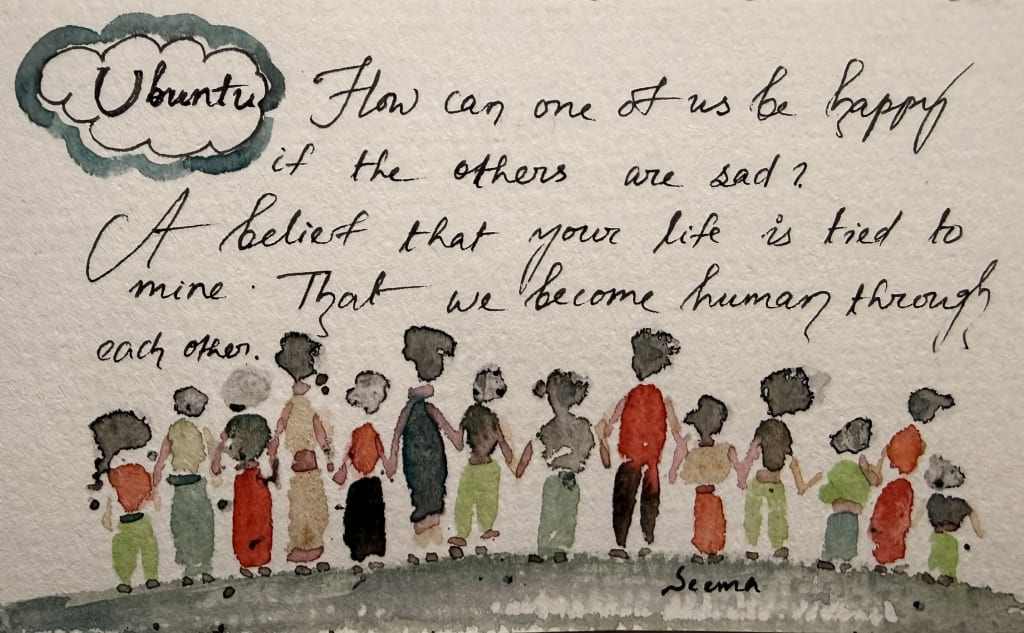 Ubuntu
How can one of us be happy
if the others are sad?
A belief that your life is tied to
mine. That we become human through
each other.
Seema